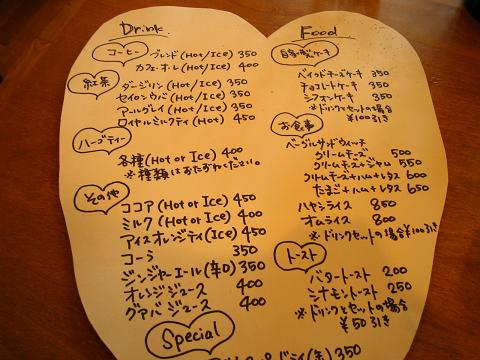 Drink
コーヒー
ブレンド(Hot/Ice) 350
カフェオーレ(Hot/Ice) 400
紅茶
ダージリン(Hot/Ice) 350
セイロンウバ(Hot/Ice) 350
アールグレイ(Hot/Ice) 350
ロイヤルミルクティ(Hot) 450
ハーブティー
各種(Hot or Ice) 400
※種類はおたずねください。
その他
ココア(Hot or Ice) 450
ミルク(Hot or Ice) 400
アイスオレンジティ(Ice) 450
コーラ 350
ジンジャーエール(辛口) 350
オレンジジュース 400
グアバジュース 400
Special
350
Food
自家製ケーキ
ベイクドチーズケーキ 350
チョコレートケーキ 350
シフォンケーキ 350
※ドリンクとセットの場合
¥100引き
お食事
ベーグルサンドウィッチ
クリームチーズ 500
クリームチーズ+ジャム 550
クリームチーズ+ハム+レタス 600
たまご+ハム+レタス 650
ハヤシライス 850
オムライス 800
※ドリンクセットの場合¥100引き
トースト
バタートースト 200
シナモントースト 250
※ドリンクとセットの場合
¥50引き